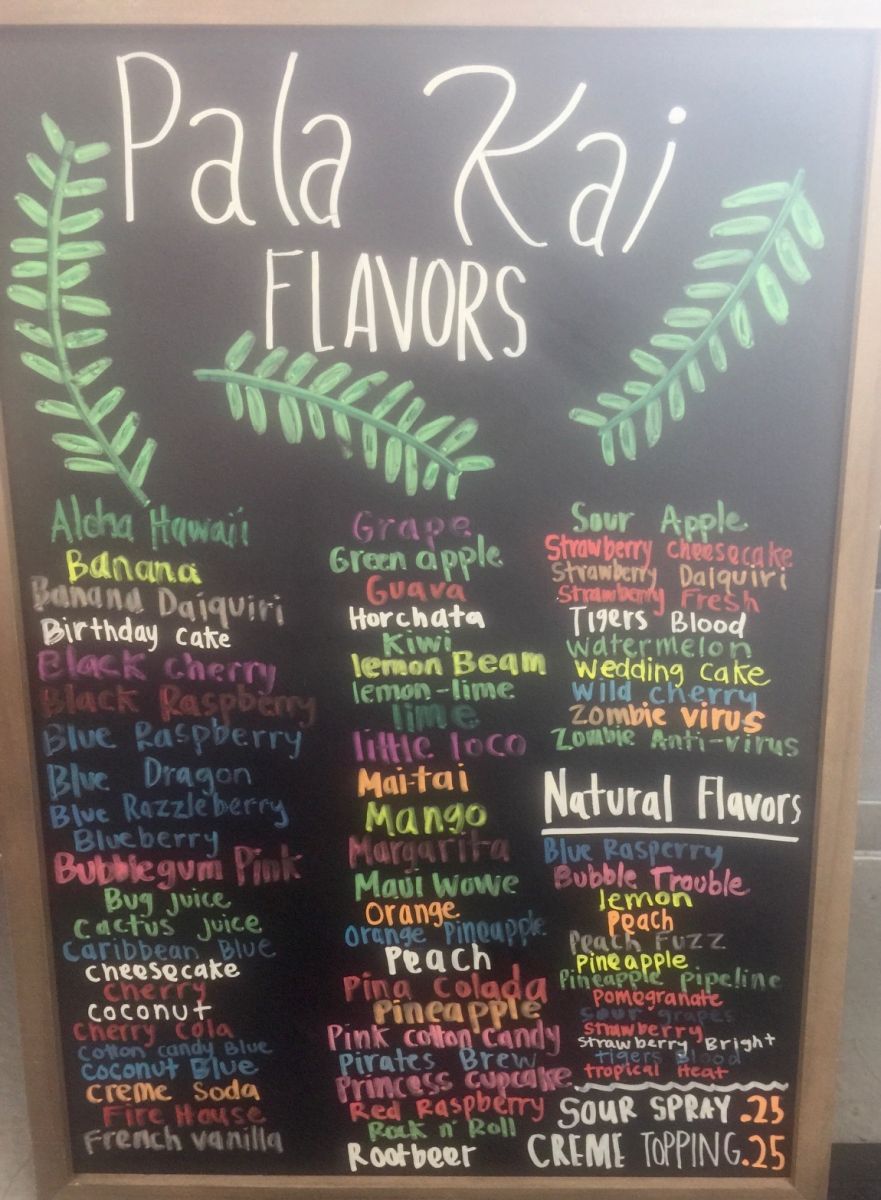 Pala Kai
FLAVORS
Aloha Hawaii
Banana
Banana Daiquiri
Birthday cake
Black cherry
Black Raspberry
Blue Raspberry
Blue Dragon
Blue Razzleberry
Blueberry
Bubblegum Pink
Bug juice
Cactus juice
Caribbean Blue
cheesecake
cherry
coconut
cherry cola
cotton candy Blue
coconut Blue
creme Soda
Fire House
French vanilla
Grape
Green apple
Guava
Horchata
Kiwi
lemon Beam
lemon-lime
lime
little loco
Mai-tai
Mango
Margarita
Maui Wowe
Orange
Orange Pineapple
Peach
Pina Colada
Pineapple
Pink cotton Candy
Pirates Brew
Princess cupcake
Red Raspberry
Rock n' Roll
Rootbeer
Sour Apple
Strawberry cheesecake
Strawberry Daiquiri
Strawberry Fresh
Tigers Blood
watermelon
wedding cake
wild cherry
Zombie virus
Zombie Anti-virus
Natural Flavors
Blue Rasperry
Bubble Trouble
lemon
Peach
Peach Fuzz
pineapple
Pineapple pipeline
Pomegranate
Sour grapes
strawberry
strawberry Bright
tigers Blood
tropical Heat
SOUR SPRAY .25
CREME TOPPING .25